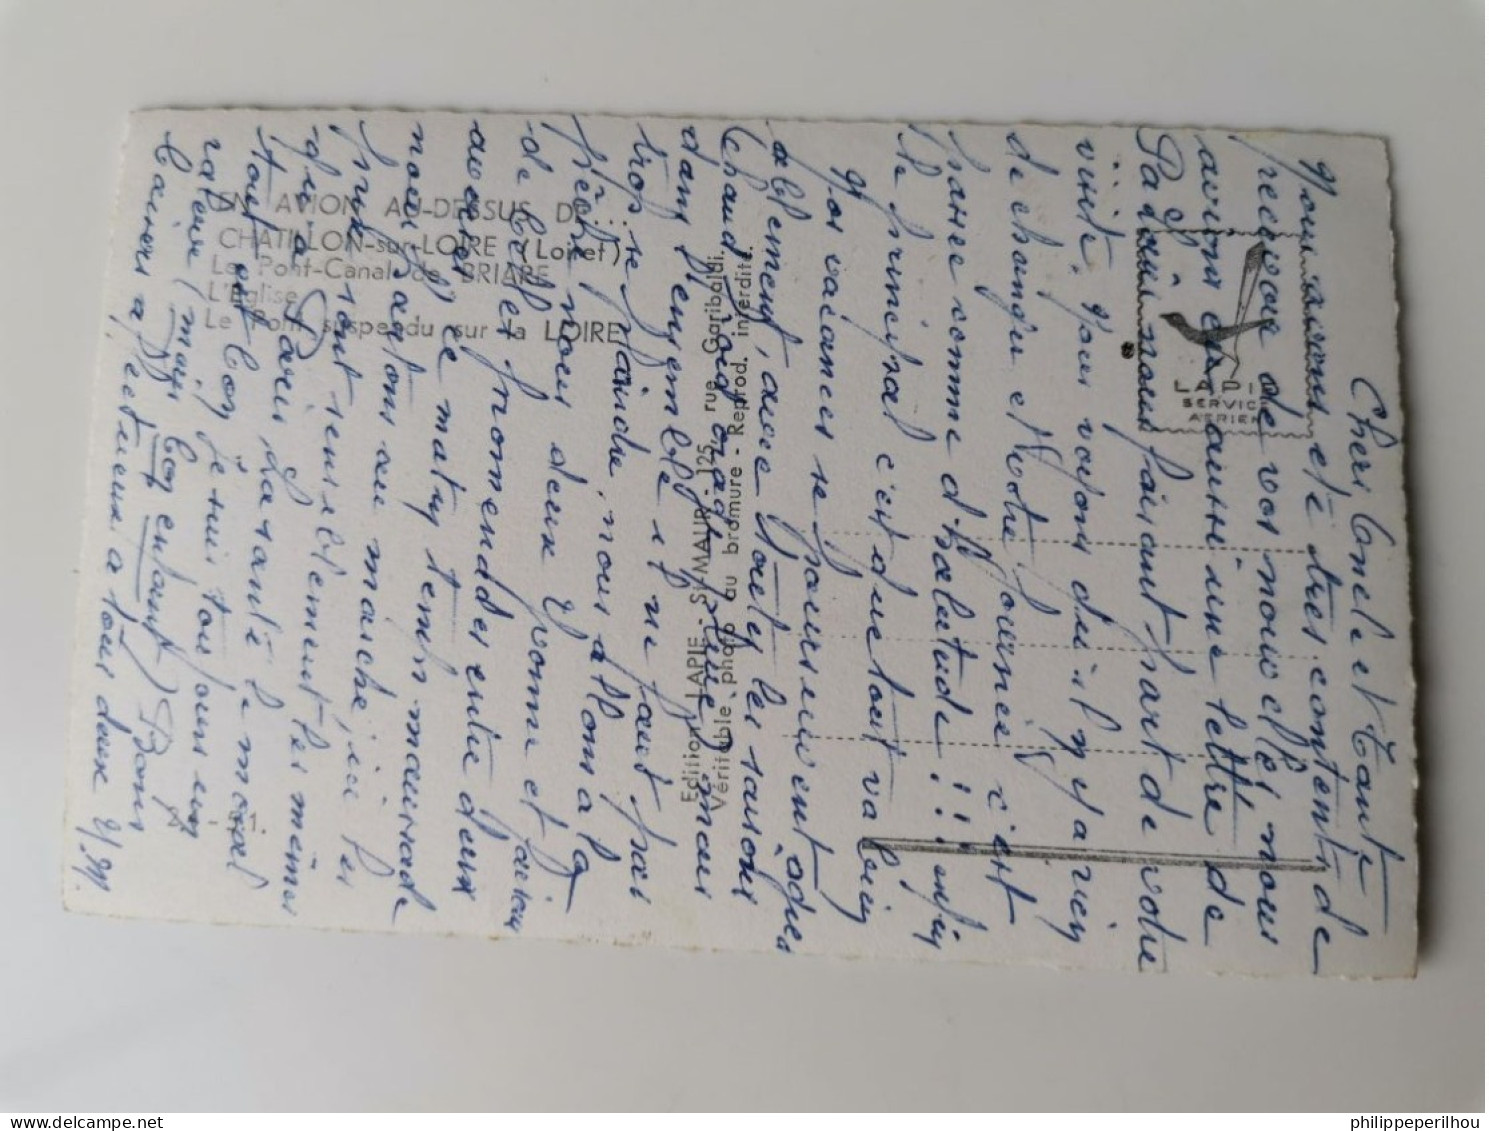 Chers Oncle et Tante
Nous avons été très contents de
recevoir de vos nouvelles, nous
avions eu aussi une lettre de
Papa nous faisant part de votre
visite. Nous voyons qu'il n'y a rien
de changé et votre journée c'est
passée comme d'habitude!!! enfin
le principal c'est que tout va bien
Nos vacances se poursuivent agré
ablement, avec toutes les saisons
chaud froid orage pluie
dans l'ensemble il ne faut pas
trop se plaindre, nous allons à la
pêche nous deux Yvonne et faisons
de belles promenades entre deux
averses. Ce matin temps maussade
nous partons au marché, ici les
prix sont sensiblement les mêmes
qu'à Paris. La santé le moral
tout est bon je suis toujours un
râleur (mais bon enfant) Bons
baisers affectueux à tous deux
EN AVION AU-DESSUS DE...
CHATILLON-sur-LOIRE (Loiret)
Le Pont-Canal de BRIARE
L'Eglise
Le Pont suspendu sur la LOIRE
Edition LAPIE - St-MAUR - 125, rue Garibaldi.
Véritable photo au bromure - Reprod. interdite.
LAPIE
SERVICE
AERIEN
philippeperilhou